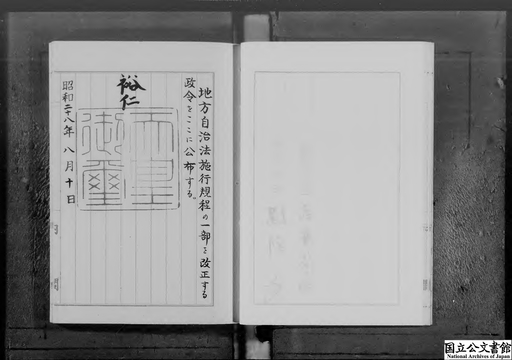 地方自治法施行規程の一部を改正する
政令をここに公布する。
裕仁
天皇御璽
昭和二十八年八月十日
国立公文書館
National Archives of Japan